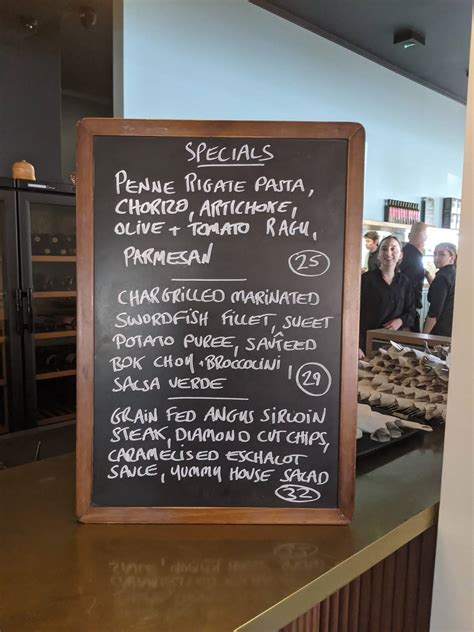 SPECIALS
PENNE RIGATE PASTA,
CHORIZO, ARTICHOKE,
OLIVE + TOMATO RAGU,
PARMESAN 25
CHARGRILLED MARINATED
SWORDFISH FILLET, SWEET
POTATO PUREE, SAUTEED
BOK CHOY + BROCCOLINI
SALSA VERDE 29
GRAIN FED ANGUS SIRLOIN
STEAK, DIAMOND CUT CHIPS,
CARAMELISED ESCHALOT
SAUCE, YUMMY HOUSE SALAD
32